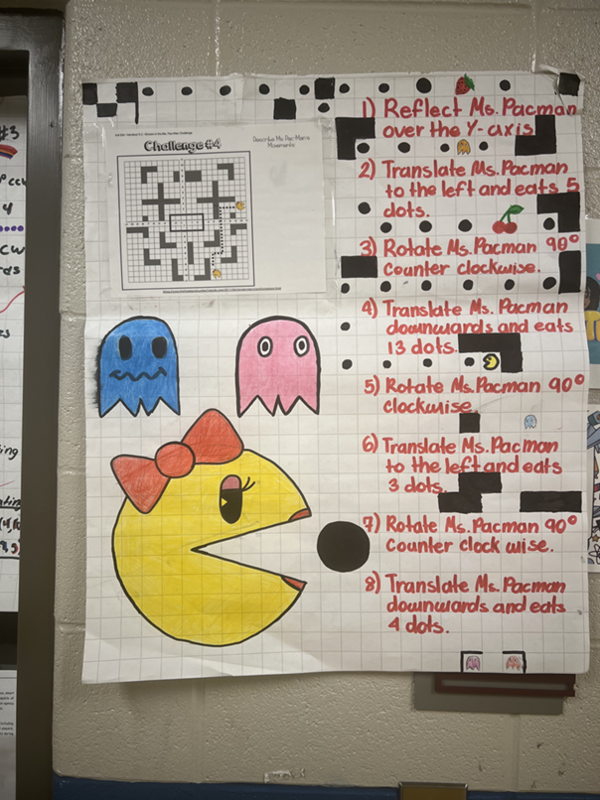 Challenge #4
Describe Ms. Pac-Man's
Movements
1) Reflect Ms. Pacman
over the Y-axis
2) Translate Ms. Pacman
to the left and eats 5
dots.
3) Rotate Ms. Pacman 90°
Counter clockwise.
4) Translate Ms. Pacman
downwards and eats
13 dots.
5) Rotate Ms. Pacman 90°
clockwise.
6) Translate Ms. Pacman
to the left and eats
3 dots.
7) Rotate Ms. Pacman 90°
Counter clock wise.
8) Translate Ms. Pacman
downwards and eats
4 dots.
#3